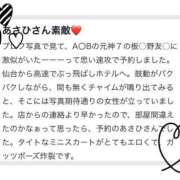 あさひさん素敵❤
プロフ写真で見て、A〇Bの元神７の板〇野友〇に
激似がいたーーーって思い速攻で予約しました。
仙台から高速でぶっ飛ばしホテルへ。鼓動がバク
バクしながら、間も無くチャイムが鳴りでてみる
と、そこには写真期待通りの女性が立っていまし
た。店からの連絡より早かったので、部屋間違え
たのかなぁって思ったら、予約のあさひさんでし
た。タイトなミニスカートがとてもエロくて、ガ
ッツポーズ炸裂です。